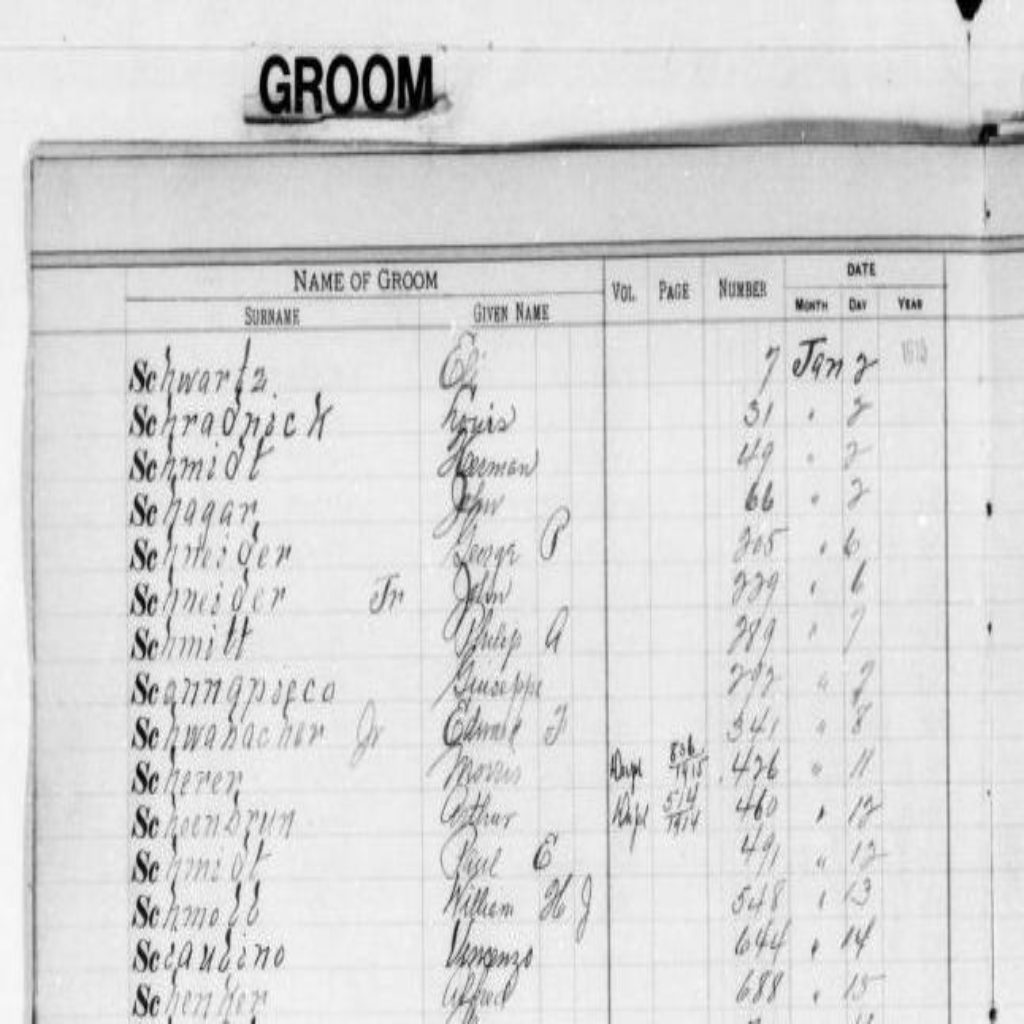 GROOM
NAME OF GROOM VOL. PAGE NUMBER DATE
SURNAME GIVEN NAME MONTH DAY YEAR
Schwartz Eli 7 Jan 2
Schradnick Louis 31 " 2
Schmidt Herman 49 " 2
Schagar John 66 " 2
Schneider George P 205 " 6
Schneider Jr John 229 " 6
Schmitt Philip A 289 " 7
Giuseppe 292 " 7
Schwanacher Jr Edward F 341 " 8
Scherer Morris Dupl 836/1915 426 " 11
Schoenbrun Arthur Dupl 514/1914 460 " 12
Schmidt Paul E 491 " 12
Schmoll William H J 548 " 13
Scialino Vincenzo 644 " 14
Schenker Alfred 688 " 15